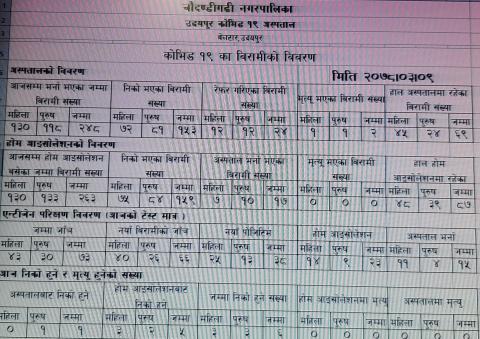 चौदण्डीगढी नगरपालिका
उदयपुर कोभिड १९ अस्पताल
बेल्टार, उदयपुर
कोभिड १९ का बिरामीको विवरण
अस्पतालको विवरण मिति २०७८।०३।०९
आजसम्म भर्ना भएका जम्मा बिरामी संख्या निको भएका बिरामी संख्या रेफर गरिएका बिरामी संख्या मृत्यु भएका बिरामी संख्या हाल अस्पतालमा रहेका बिरामी संख्या
महिला पुरुष जम्मा महिला पुरुष जम्मा महिला पुरुष जम्मा महिला पुरुष जम्मा महिला पुरुष जम्मा
१३० ११८ २४८ ७२ ८१ १५३ १२ १२ २४ १ १ २ ४५ २४ ६९
होम आइसोलेसनको विवरण
आजसम्म होम आइसोलेसन बसेका जम्मा बिरामी संख्या निको भएका बिरामी संख्या अस्पताल भर्ना भएका बिरामी संख्या मृत्यु भएका बिरामी संख्या हाल होम आइसोलेसनमा रहेका
महिला पुरुष जम्मा महिला पुरुष जम्मा महिला पुरुष जम्मा महिला पुरुष जम्मा महिला पुरुष जम्मा
१३० १३३ २६३ ७५ ८४ १५९ ७ १० १७ ० ० ० ४८ ३९ ८७
एन्टीजेन परिक्षण विवरण (आजको टेस्ट मात्र)
जम्मा जाँच नयाँ बिरामीको जाँच नयाँ पोजिटिभ होम आइसोलेसन अस्पताल भर्ना
महिला पुरुष जम्मा महिला पुरुष जम्मा महिला पुरुष जम्मा महिला पुरुष जम्मा महिला पुरुष जम्मा
४३ ३० ७३ ४० २६ ६६ २५ १३ ३८ १४ ९ २३ ११ ४ १५
आज निको हुने र मृत्यु हुनेको संख्या
अस्पतालबाट निको हुने होम आइसोलेसनबाट निको हुने जम्मा निको हुने संख्या होम आइसोलेसनमा मृत्यु अस्पतालमा मृत्यु
महिला पुरुष जम्मा महिला पुरुष जम्मा महिला पुरुष जम्मा महिला पुरुष जम्मा महिला पुरुष जम्मा
० १ १ ३ २ ५ ३ ३ ६ ० ० ० ० ० ०